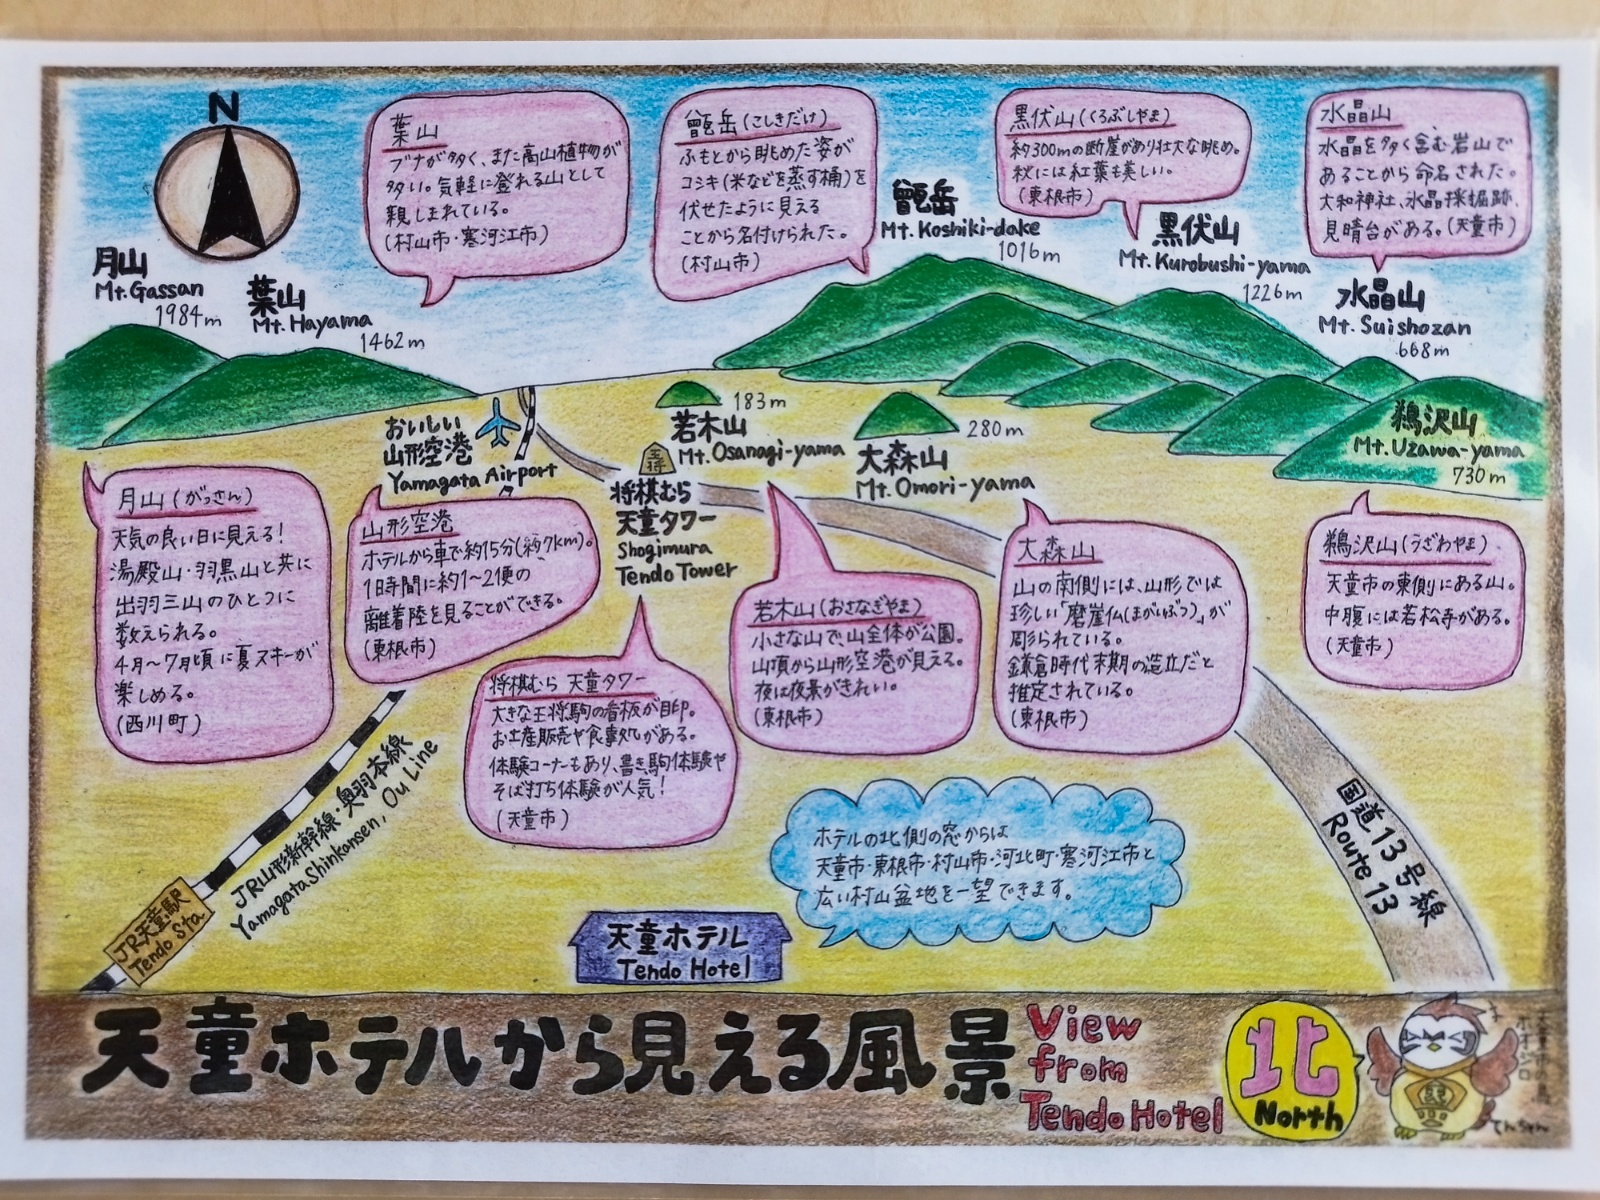 N
月山
Mt.Gassan
1984m
葉山
Mt.Hayama
1462m
葉山
ブナが多く、また高山植物が
多い。気軽に登れる山として
親しまれている。
(村山市・寒河江市)
甑岳(こしきだけ)
ふもとから眺めた姿が
コシキ(米などを蒸す桶)を
伏せたように見える
ことから名付けられた。
(村山市)
甑岳
Mt.Koshiki-dake
1016m
黒伏山(くろぶしやま)
約300mの断崖があり壮大な眺め。
秋には紅葉も美しい。
(東根市)
黒伏山
Mt.Kurobushi-yama
1226m
水晶山
水晶を多く含む岩山で
あることから命名された。
大和神社、水晶採掘跡、
見晴台がある。(天童市)
水晶山
Mt.Suishozan
668m
おいしい
山形空港
Yamagata Airport
183m
若木山
Mt.Osanagi-yama
280m
大森山
Mt.Omori-yama
鵜沢山
Mt.Uzawa-yama
730m
王将
将棋むら
天童タワー
Shogimura
Tendo Tower
月山(がっさん)
天気の良い日に見える!
湯殿山・羽黒山と共に
出羽三山のひとつに
数えられる。
4月〜7月頃に夏スキーが
楽しめる。
(西川町)
山形空港
ホテルから車で約15分(約7km)。
1時間に約1〜2便の
離着陸を見ることができる。
(東根市)
将棋むら 天童タワー
大きな王将駒の看板が目印。
お土産販売や食事処がある。
体験コーナーもあり、書き駒体験や
そば打ち体験が人気!
(天童市)
若木山(おさなぎやま)
小さな山で、山全体が公園。
山頂から山形空港が見える。
夜は夜景がきれい。
(東根市)
大森山
山の南側には、山形では
珍しい「磨崖仏(まがいぶつ)」が
彫られている。
鎌倉時代末期の造立だと
推定されている。
(東根市)
鵜沢山(うざわやま)
天童市の東側にある山。
中腹には若松寺がある。
(天童市)
JR山形新幹線・奥羽本線
Yamagata Shinkansen, Ou Line
JR天童駅
Tendo Sta.
国道13号線
Route 13
ホテルの北側の窓からは
天童市・東根市・村山市・河北町・寒河江市と
広い村山盆地を一望できます。
天童ホテル
Tendo Hotel
天童ホテルから見える風景
View
from
Tendo Hotel
北
North
てんちゃん